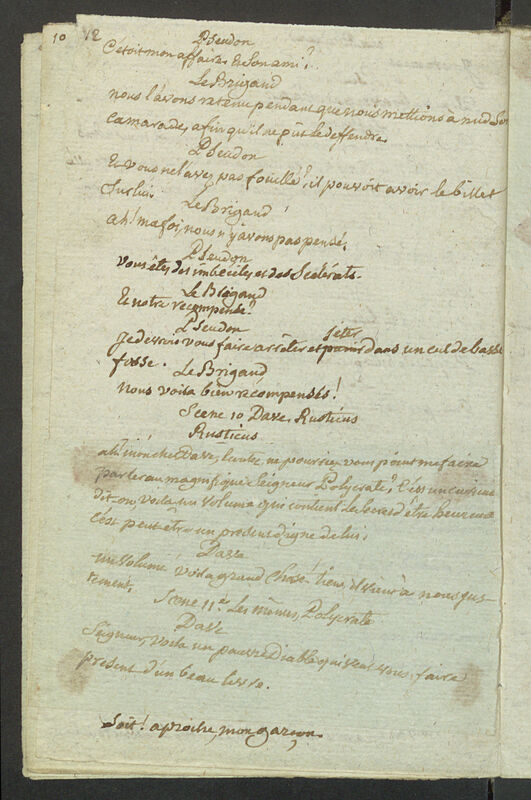 10 12
Pseudon
C'étoit mon affaire. Et son ami?
Le Brigand
nous l'avons retenu pendant que nous mettions a nud son
camarade, afin qu'il ne pût le deffendre
Pseudon
Et vous ne l'avez pas fouillé? il pouvoit avoir le billet
sur lui.
Le Brigand
ah! ma foi, nous n'y avons pas pensé.
Pseudon
vous êtes des imbéciles et des Scélérats.
Le Brigand
Et notre recompense?
Pseudon
jeter
je devrois vous faire arrêter et punir dans un cul de basse
fosse.
Le Brigand
nous voila bien récompensés!
Scene 10 Dave, Rusticus
Rusticus
ah! mon cher Dave, écoutez, ne pourriez vous point me faire
parler au magnifique Seigneur Polycrate? C'est un curieux
dit-on, voila un volume qui contient le secret d'être heureux
c'est peut-être un present digne de lui.
Dave
un volume! voila grand chose! tiens, il vient à nous jus-
tement.
Scene 11e. Les mêmes, Polycrate
Dave
Seigneur, voila un pauvre Diable qui veut vous faire
present d'un beau livre.
Soit! aproche, mon garçon.